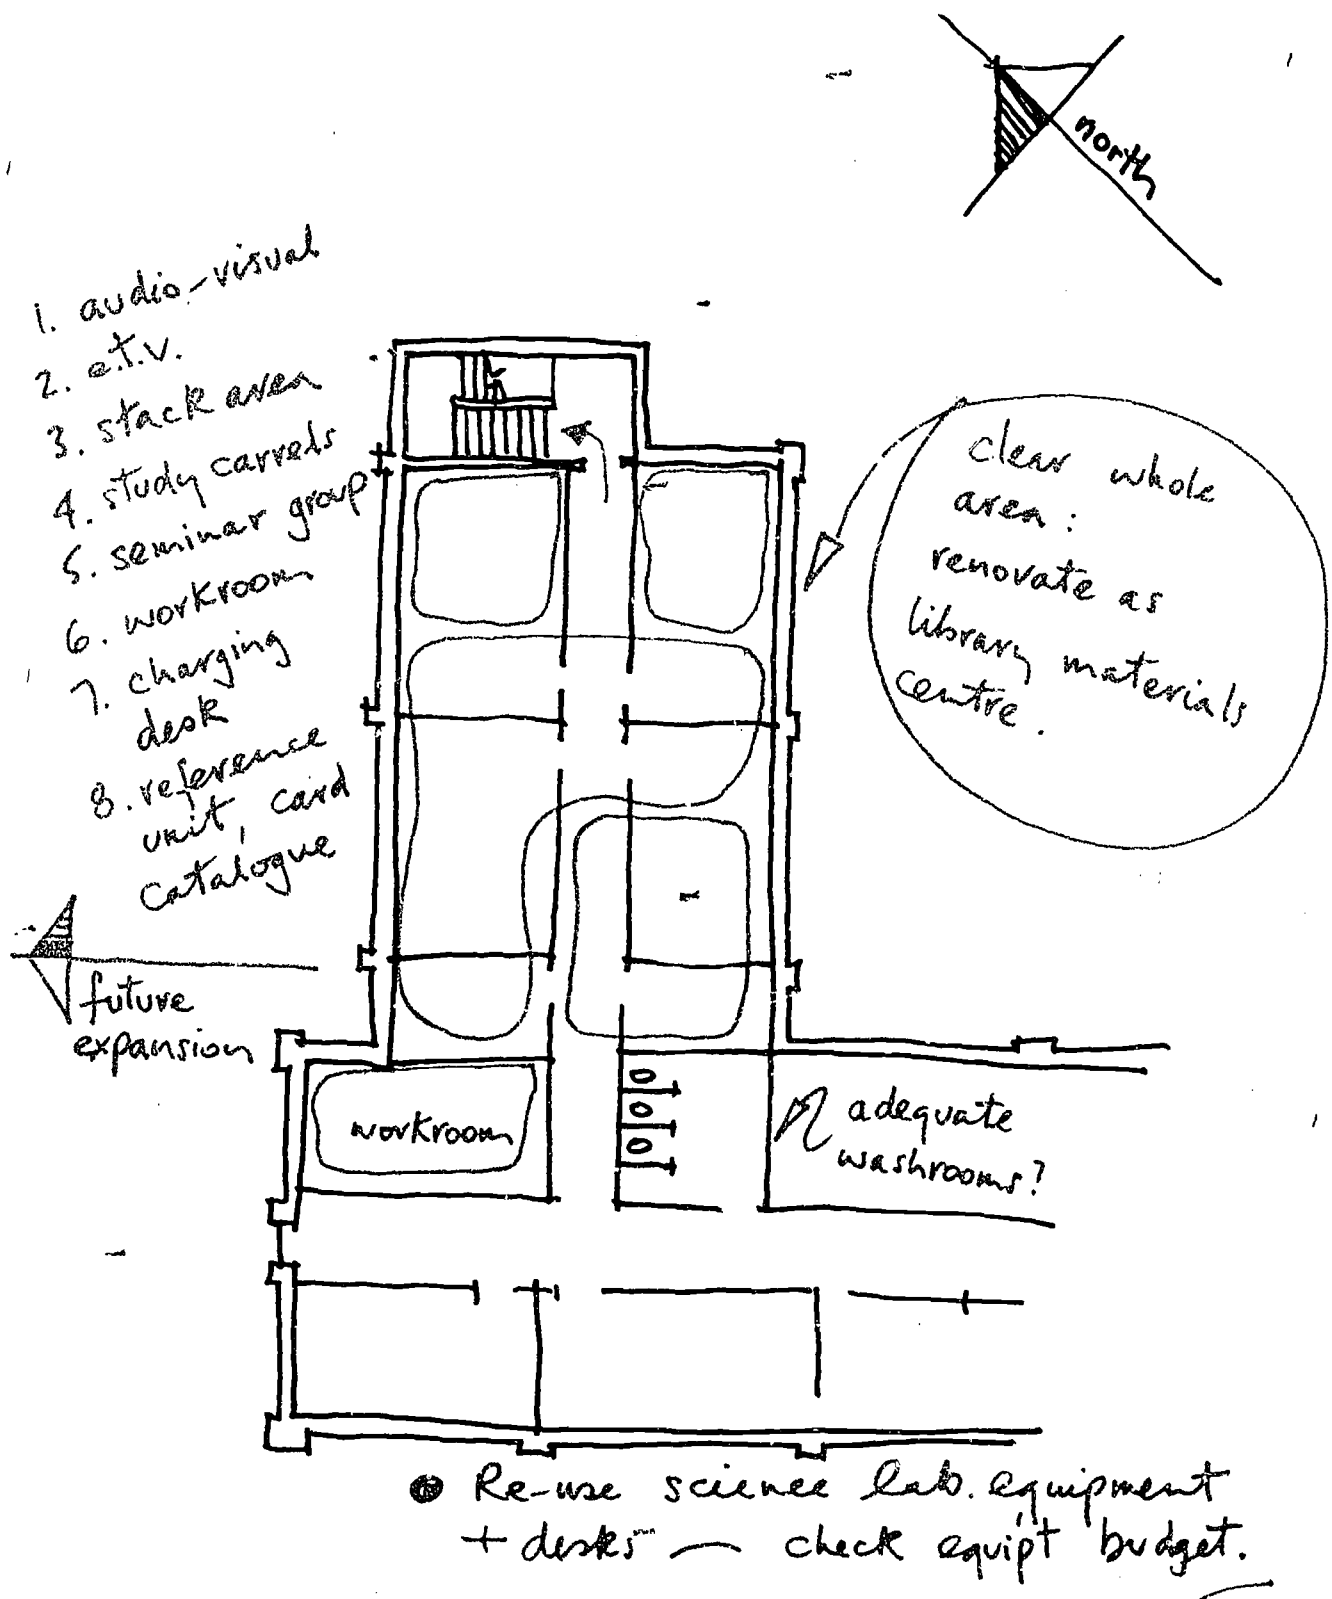 north
1. audio-visual
2. e.t.v.
3. stack area
4. study carrels
5. seminar group
6. workroom
7. charging
desk
8. reference
unit, card
catalogue
clear whole
area:
renovate as
library materials
centre.
future
expansion
workroom
adequate
washrooms?
Re-use science lab. equipment
+ desks — check equipt budget.